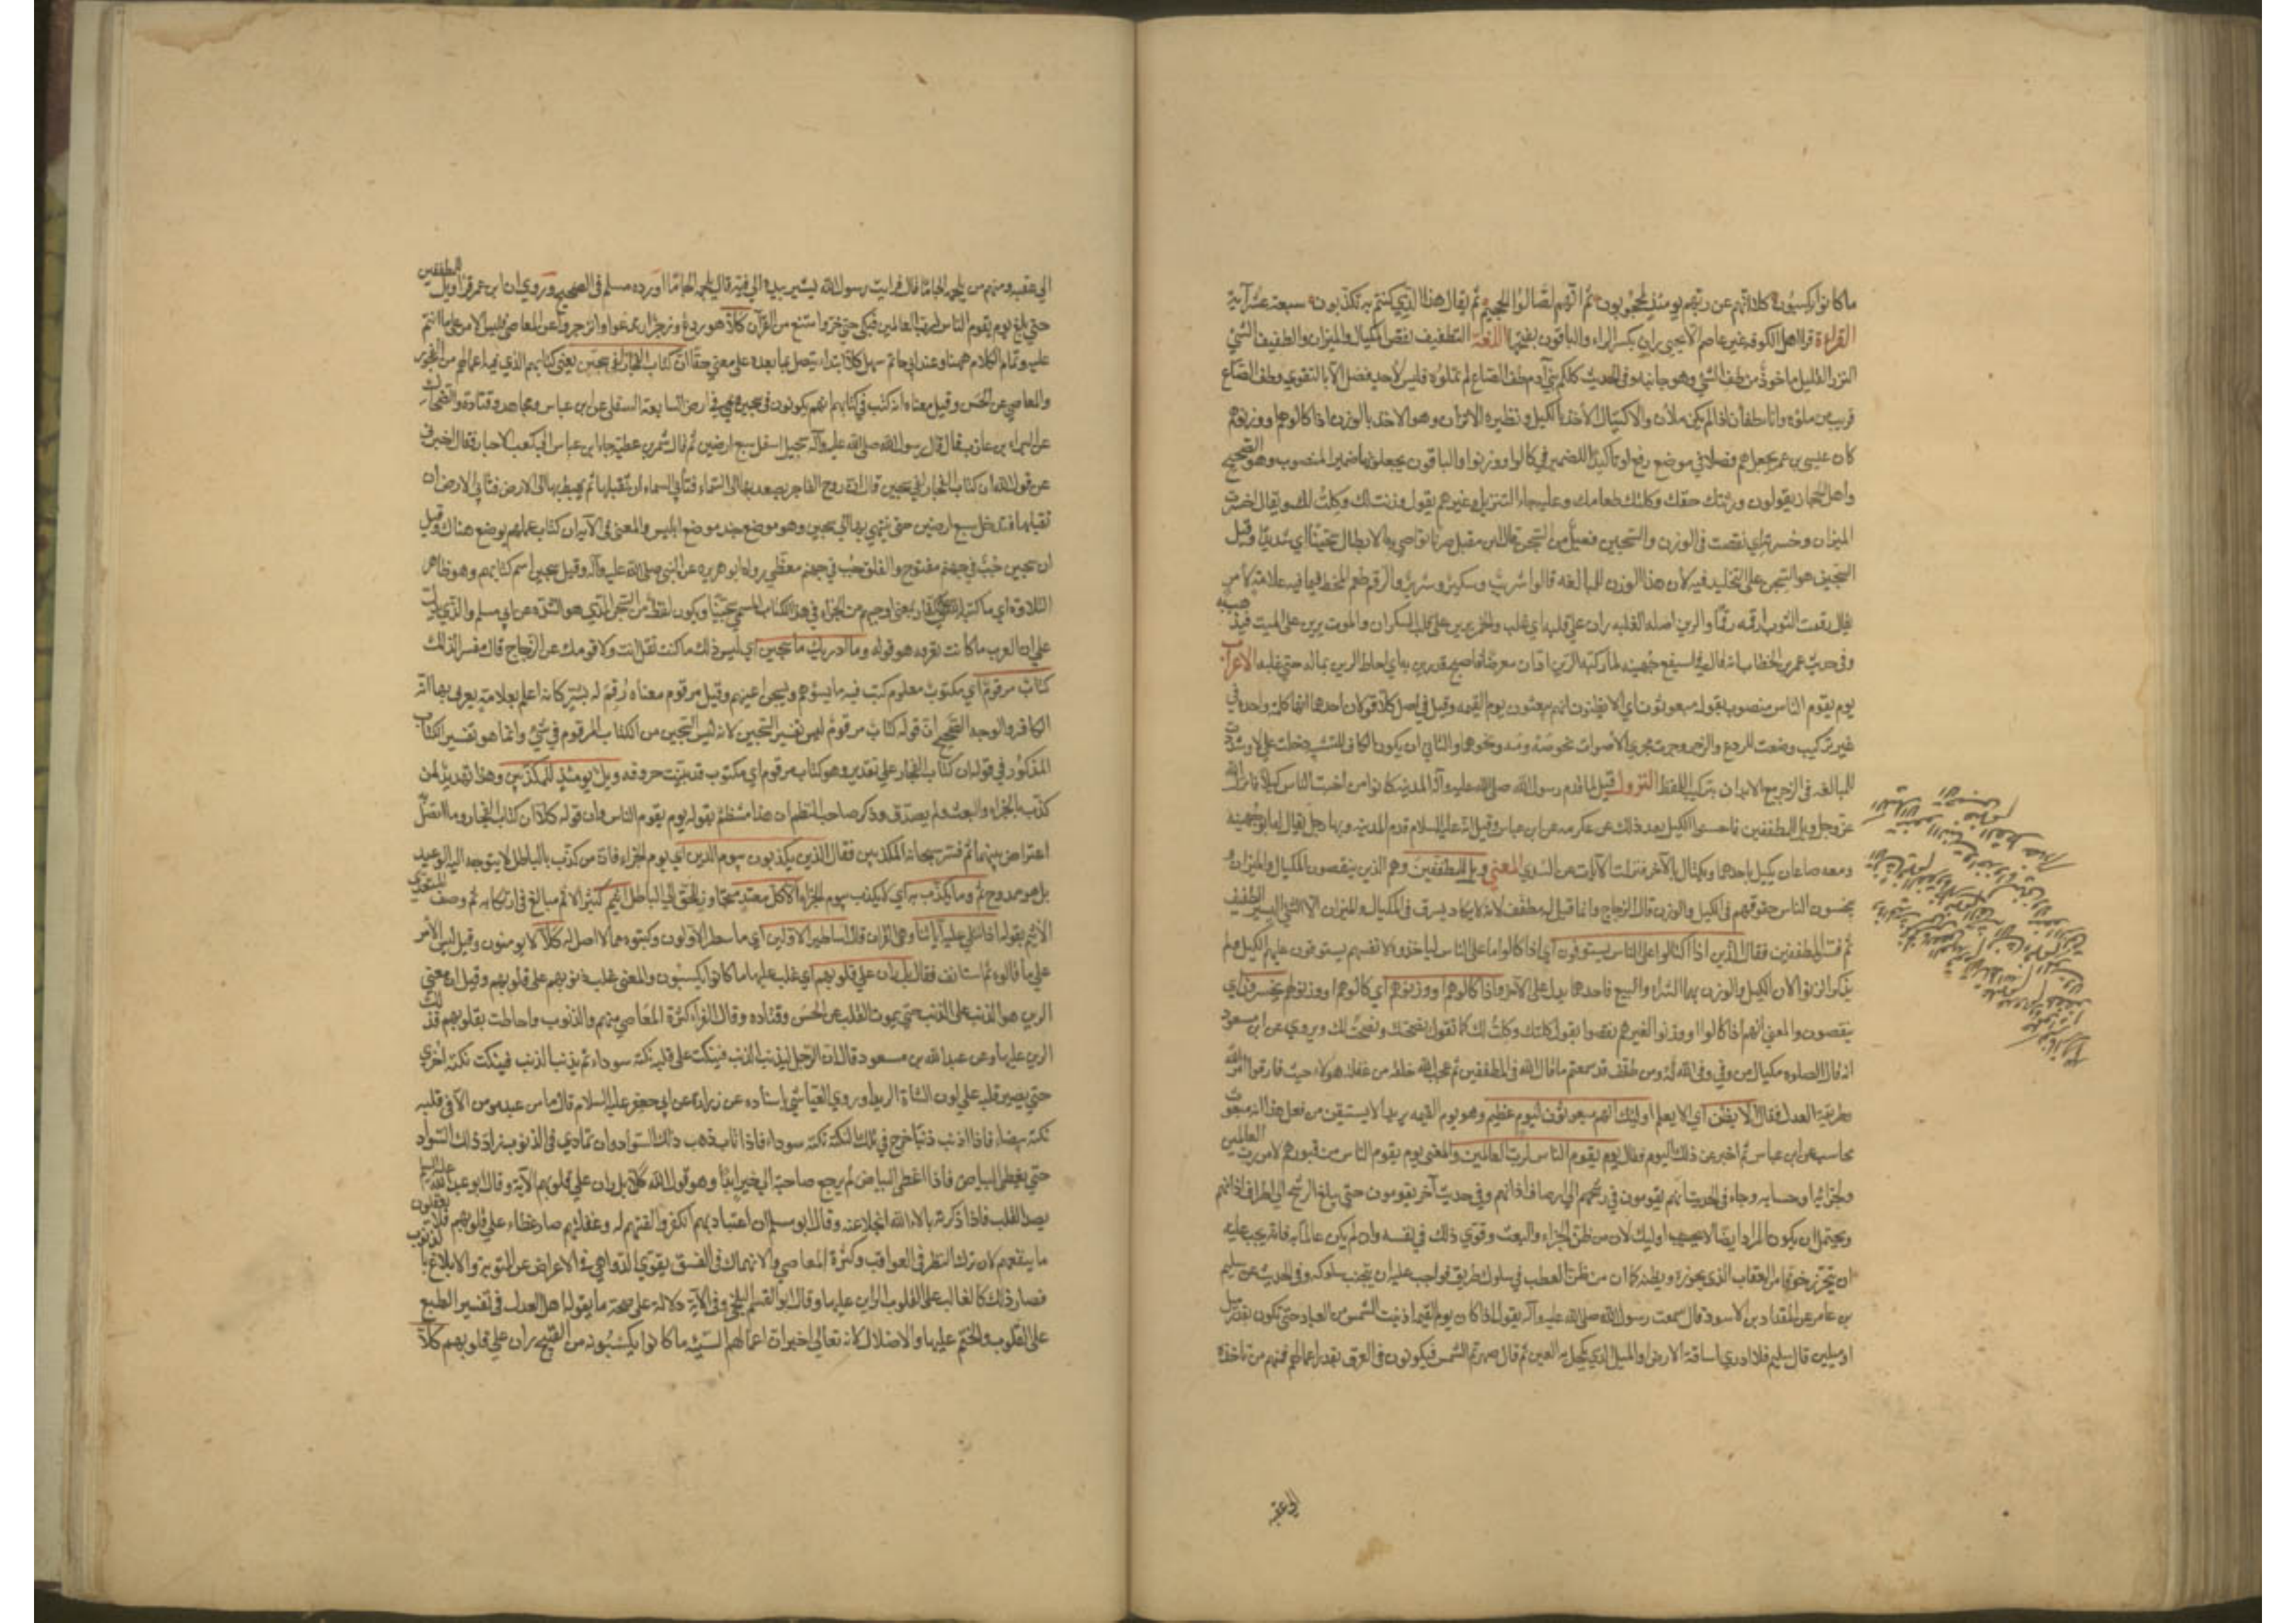 ما كانوا يكسبون كلا انهم عن ربهم يومئذ لمحجوبون ثم انهم لصالوا الجحيم ثم يقال هذا الذي كنتم به تكذبون سبعة عشر آية
القراءة قرا اهل الكوفة غير عاصم الا يحيى ران بكسر الراء والباقون بفتحها اللغة التطفيف نقص المكيال والميزان والطفيف الشي
النزر القليل ماخوذ من طف الشي وهو جانبه وفي الحديث كلكم بني آدم طف الصاع لم تملؤه فليس لأحد فضل الا بالتقوى وطف الصاع
قريب من ملؤه واناء طفان اذا لم يكن ملآن والاكتيال الأخذ بالكيل ونظيره الاتزان وهو الاخذ بالوزن اذا كالوهم او وزنوهم
كان عيسى بن عمر يجعل هم فصلا في موضع رفع لو تاكيدا للضمير في كالوا ووزنوا والباقون يجعلونها ضمير المنصوب وهو الصحيح
واهل الحجاز يقولون وزنتك حقك وكلتك طعامك وعليه جاء التنزيل وغيرهم يقول وزنت لك وكلت لك ويقال اخسرت
الميزان وخسرته اي نقصت في الوزن والسجين فعيل من السجن قال ابن مقبل ضربا تواصى به الابطال سجينا اي شديدا وقيل
السجين هو السجن على التخليد فيه لان هذا الوزن للمبالغة قالوا شريب وسكير وشرير والرقم طبع الخط فيما فيه علامة لأمر
يقال رقمت الثوب ارقمه رقما والرين اصله الغلبة ران على قلبه اي غلب والخمر يرين على قلب السكران والموت يرين على الميت فيذهب به
وفي حديث عمر بن الخطاب انه قال في اسيفع جهينه لما ركبه الدين ادان معرضا فاصبح قد رين به اي احاط الدين بماله حتى غلبه الاعراب
يوم يقوم الناس منصوب بقوله مبعوثون اي الا يظنون انهم يبعثون يوم القيمه وقيل في اصل كلا قولان احدهما انها كلمة واحدة في
غير تركيب وضعت للردع والزجر وجرت مجرى الأصوات نحو صه ومه ونحوهما والثاني ان يكون الكاف للتشبيه دخلت على لا وشددت
للمبالغه في الزجر مع الايذان بتركيب اللفظ النزول قيل لما قدم رسول الله صلى الله عليه وآله المدينه كانوا من اخبث الناس كيلا فانزل الله
عز وجل ويل للمطففين فاحسنوا الكيل بعد ذلك عن عكرمه عن ابن عباس وقيل انه عليه السلام قدم المدينه وبها رجل يقال له ابو جهينه
ومعه صاعان يكيل باحدهما ويكتال بالآخر فنزلت الآيات عن السدي المعنى ويل للمطففين وهم الذين ينقصون المكيال والميزان و
يبخسون الناس حقوقهم في الكيل والوزن قال الزجاج وانما قيل له مطفف لانه لا يكاد يسرق في المكيال والميزان الا الشي اليسير الطفيف
ثم فسر المطففين فقال الذين اذا اكتالوا على الناس يستوفون اي اذا كالوا ما على الناس لياخذوه لانفسهم يستوفون عليهم الكيل ولم
يذكر اتزنوا لان الكيل والوزن بهما الشراء والبيع فاحدهما يدل على الآخر واذا كالوهم او وزنوهم اي كالوا لهم او وزنوا لهم يخسرون اي
ينقصون والمعنى انهم اذا كالوا او وزنوا لغيرهم نقصوا يقول كلتك وكلت لك كما تقول نصحتك ونصحت لك ويروى عن ابن مسعود
انه قال الصلوه مكيال من وفى وفى الله له ومن طفف قد سمعتم ما قال الله في المطففين ثم عجب الله خلقه من غفلة هؤلاء حيث فارقوا امر الله
وطريقة العدل فقال الا يظن اي الا يعلم اولئك انهم مبعوثون ليوم عظيم وهو يوم القيمه يريد الا يستيقن من فعل هذا انه مبعوث
محاسب عن ابن عباس ثم اخبر عن ذلك اليوم فقال يوم يقوم الناس لرب العالمين والمعنى يوم يقوم الناس من قبورهم لامر رب العالمين
ولجزائه او حسابه وجاء في الحديث انهم يقومون في رشحهم الى انصاف آذانهم وفي حديث آخر يقومون حتى يبلغ الرشح الى اطراف آذانهم
ويحتمل ان يكون المراد ايضا الا يحسب اولئك لان من ظن الجزاء والبعث وقوي ذلك في نفسه وان لم يكن عالما به فانه يجب عليه
ان يتحرز خوفا من العقاب الذي يجوزه ويظنه كما ان من ظن العطب في سلوك طريق فواجب عليه ان يتجنب سلوكه وفي الحديث عن سليم
بن عامر عن المقداد بن الاسود قال سمعت رسول الله صلى الله عليه وآله يقول اذا كان يوم القيمة ادنيت الشمس من العباد حتى تكون بقدر ميل
او ميلين قال سليم فلا ادري اسافة الارض او الميل الذي يكحل به العين ثم قال صهرتهم الشمس فيكونون في العرق بقدر اعمالهم فمنهم من تاخذه
الى عقبه
الى عقبه ومنهم من يلجمه الجاما قال فرايت رسول الله يشير بيده الى فيه قال يلجمه الجاما اورده مسلم في الصحيح وروي ان ابن عمر قرا ويل للمطففين
حتى بلغ يوم يقوم الناس لرب العالمين فبكى حتى خر وامتنع من القرآن كلا هو ردع وزجر اي ارتدعوا وانزجروا عن المعاصي فليس الامر على ما انتم
عليه وتمام الكلام ههنا وعند ابي حاتم سهل كلا ابتداء يتصل بما بعده على معنى حقا ان كتاب الفجار لفي سجين يعني كتابهم الذي فيه اعمالهم من الفجور
والمعاصي عن الحسن وقيل معناه انه كتب في كتابهم انهم يكونون في سجين وهي في ارض السابعة السفلى عن ابن عباس ومجاهد وقتادة والضحاك
عن البراء بن عازب قال قال رسول الله صلى الله عليه وآله سجين اسفل سبع ارضين ثم قال شمر بن عطية جاء ابن عباس الى كعب الاحبار فقال اخبرني
عن قول الله ان كتاب الفجار لفي سجين قال ان روح الفاجر يصعد بها الى السماء فتأبى السماء ان تقبلها ثم يهبط بها الى الارض فتأبى الارض ان
تقبلها فتدخل سبع ارضين حتى ينتهي بها الى سجين وهو موضع جند موضع ابليس والمعنى في الآية ان كتاب عملهم يوضع هناك وقيل
ان سجين جب في جهنم مفتوح والفلق جب في جهنم مغطى رواه ابو هريره عن النبي صلى الله عليه وآله وقيل سجين اسم كتابهم وهو ظاهر
التلاوة اي ما كتبه الله على الكفار بمعنى اوجبه من الجزاء في هذا الكتاب المسمى سجينا ويكون لفظه من السجن الذي هو الشدة عن ابي مسلم والذي يدل
على ان العرب ما كانت تعرفه هو قوله وما ادريك ما سجين اي ليس ذلك ما كنت تعلمه انت ولا قومك عن الزجاج قال فسر الذلك
كتاب مرقوم اي مكتوب معلوم كتب فيه ما يسؤهم ويسخن اعينهم وقيل مرقوم معناه رقم له بشر كانه اعلم بعلامة يعرف بها انه
الكافر والوجه الصحيح ان قوله كتاب مرقوم ليس تفسير السجين لانه ليس السجين من الكتاب المرقوم في شي وانما هو تفسير الكتاب
المذكور في قوله ان كتاب الفجار على تقدير وهو كتاب مرقوم اي مكتوب قد تبينت حروفه ويل يومئذ للمكذبين وهذا تهديد لمن
كذب بالجزاء والبعث ولم يصدق وذكر صاحب النظم ان هذا منتظم بقوله يوم يقوم الناس وان قوله كلا ان كتاب الفجار وما اتصل به
اعتراض بينهما ثم فسر سبحانه المكذبين فقال الذين يكذبون بيوم الدين اي يوم الجزاء فان من كذب بالباطل لا يتوجه اليه الوعيد
بل هو ممدوح ثم وما يكذب به اي لا يكذب بيوم الجزاء الا كل معتد متجاوز للحق الى الباطل اثيم كثير الاثم مبالغ في ارتكابه ثم وصف المعتدي
الأثيم بقوله اذا تتلى عليه آياتنا وهي القران قال اساطير الاولين اي ما سطره الاولون وكتبوه مما لا اصل له كلا لا يؤمنون وقيل ليس الأمر
على ما قالوه ثم استانف فقال بل ران على قلوبهم اي غلب عليها ما كانوا يكسبون والمعنى غلب ذنوبهم على قلوبهم وقيل ان معنى
الرين هو الذنب على الذنب حتى يموت القلب عن الحسن وقتاده وقال الفراء كثرة المعاصي منهم والذنوب واحاطت بقلوبهم فذلك
الرين عليها وعن عبد الله بن مسعود قال ان الرجل ليذنب الذنب فينكت على قلبه نكتة سوداء ثم يذنب الذنب فينكت نكتة اخرى
حتى يصير قلبه على لون الشاة الربداء وروى العياشي باسناده عن زرارة عن ابي جعفر عليه السلام قال ما من عبد مومن الا في قلبه
نكتة بيضاء فاذا اذنب ذنبا خرج في تلك النكتة نكتة سوداء فاذا تاب ذهب ذلك السواد وان تمادى في الذنوب زاد ذلك السواد
حتى يغطى البياض فاذا غطى البياض لم يرجع صاحبه الى خير ابدا وهو قول الله كلا بل ران على قلوبهم الآية وقال ابو عبد الله عليه السلام
يصدا القلب فاذا ذكرته بالاء الله انجلا عنه وقال ابو مسلم ان اعتيادهم الكفر والفتهم له وغفلتهم صار غطاء على قلوبهم فلا يعقلون
ما ينفعهم لان ترك النظر في العواقب وكثرة المعاصي والانهماك في الفسق يقوي الدواهي في الاعراض عن التوبة والاقلاع
فصار ذلك كالغالب على القلوب الراين عليها وقال ابو القسم البلخي وفي الآية دلالة على صحة ما يقوله اهل العدل في تفسير الطبع
على القلوب والختم عليها والاضلال لانه تعالى اخبر ان اعمالهم السيئه ما كانوا يكسبونه من القبيح ران على قلوبهم كلا